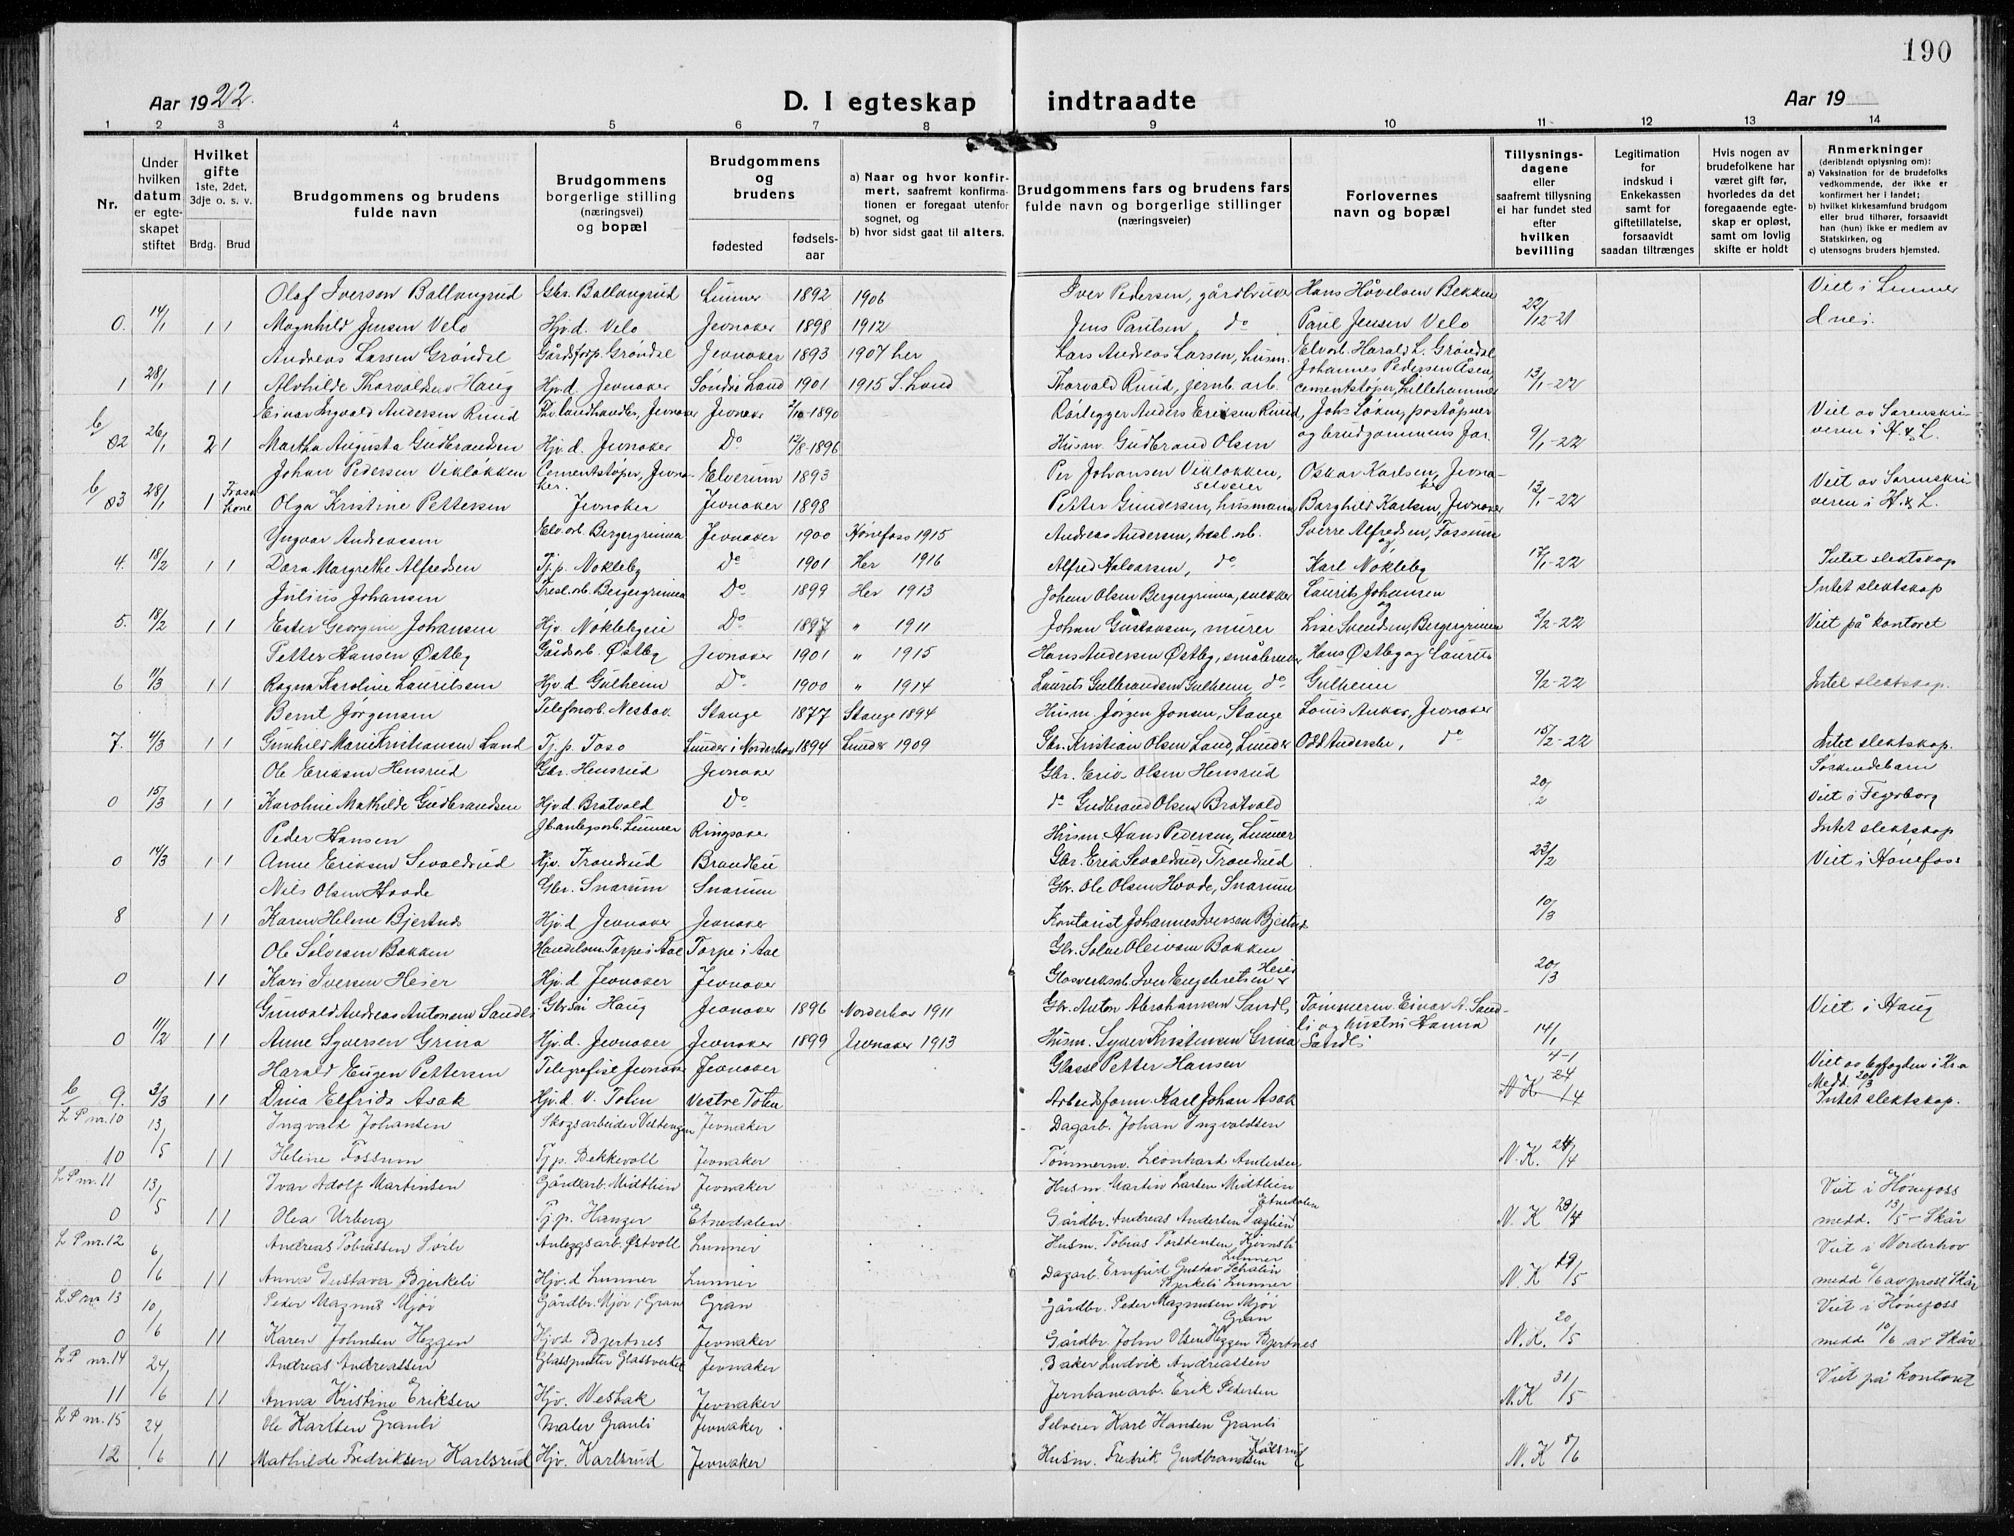 190
Aar 1922.
D. I egteskap indtraadte
Aar 19
1 2 3 4 5 6 7 8 9 10 11 12 13 14
Nr.
Under hvilken datum er egteskapet stiftet
Hvilket gifte 1ste, 2det, 3dje o. s. v.
Brdg. Brud
Brudgommens og brudens fulde navn
Brudgommens borgerlige stilling (næringsvei) og bopæl
Brudgommens og brudens
fødested
fødselsaar
a) Naar og hvor konfirmert, saafremt konfirmationen er foregaat utenfor sognet, og
b) hvor sidst gaat til alters.
Brudgommens fars og brudens fars fulde navn og borgerlige stillinger (næringsveier)
Forlovernes navn og bopæl
Tillysningsdagene eller saafremt tillysning ei har fundet sted efter hvilken bevilling
Legitimation for indskud i Enkekassen samt for giftetillatelse, forsaavidt saadan tiltrænges
Hvis nogen av brudefolkene har været gift før, hvorledes da det foregaaende egteskap er opløst, samt om lovlig skifte er holdt
Anmerkninger (deriblandt oplysning om): a) Vaksination for de brudefolks vedkommende, der ikke er konfirmert her i landet; b) hvilket kirkesamfund brudgom eller brud tilhører, forsaavidt han (hun) ikke er medlem av Statskirken, og c) utensogns bruders hjemsted.
Olaf Iversen Ballangrud Gbr. Ballangrud Lunner 1892 1906 Iver Pedersen, gårdbruker Hans Høvelsen Bekken Viet i Lunner
0. 14/1 1 1 Magnhild Jensen Velo Hjv.d. Velo Jevnaker 1898 1912 Jens Paulsen, do Paul Jensen Velo 22/12-21
Andreas Larsen Grøndal Gårdsforp. Grøndal Jevnaker 1893 1907 her Lars Andreas Larsen, husm. Elvarb. Harald L. Grøndal
1 28/1 1 1 Alvhilde Thorvaldsen Haug Hjv.d. Jevnaker Søndre Land 1901 1915 S. Land Thorvald Ruud, jernb. arb. Johannes Pedersen Åsen, cementstøper, Lillehammer 13/1-22
Einar Ingvald Andersen Ruud Fhv. landhandler, Jevnaker Jevnaker 2/10-1890 Rørlegger Anders Eriksen Ruud, Johs Løken, poståpner Viet av Sorenskri-
b/ 02 26/1 2 1 Martha Augusta Gudbrandsen Hjv. d. Jevnaker Do 12/8-1896 Husm. Gudbrand Olsen og brudgommens far. 9/1-22 veren i H. & L.
Johan Pedersen Vikløkken Cementstøper, Jevnaker. Elverum 1893 Per Johansen Vikløkken, selveier Oskar Karlsen, Jevnaker Viet av Sorenskri-
b/ 03 28/1 1 Fraskilt kone Olga Kristine Pettersen Jevnaker Jevnaker 1898 Petter Gundersen, husmann Borghild Karlsen, Jevnaker 13/1-22 veren i H. & L.
Yngvar Andreassen Elv.arb. Bergergrinna Jevnaker 1900 Hønefoss 1915 Andreas Andersen, tresl. arb. Sverre Alfredsen, Fossum
4. 18/2 1 1 Dora Margrethe Alfredsen Tj.p. Nøkleby Do 1901 Her 1916 Alfred Halvorsen, do og Karl Nøkleby 17/1-22 Intet slektskap
Julius Johansen Tresl.arb. Bergergrinna Do 1899 Her 1913 Johan Olsen Bergergrinna, snekker Laurits Johansen Intet slektskap
5. 18/2 1 1 Ester Georgine Johansen Hjv. Nøklebyeie Do 1897 " 1911 Johan Gustavsen, murer og Lise Svendsen, Bergergrinna 2/2-22 Viet på kontoret
Petter Hansen Østby Gårdsarb. Østby Jevnaker 1901 " 1915 Hans Andersen Østby, småbruker Hans Østby og Laurits
6 11/3 1 1 Ragna Karoline Lauritsen Hjv.d Gulheim Do 1900 " 1914 Laurits Gulbrandsen Gulheim, do Gulheim 9/2-22 Intet slektskap.
Bernt Jørgensen Telefonarb. Nesbak. Stange 1877 Stange 1894 Husm. Jørgen Jonsen, Stange Louis Anker, Jevnaker
7. 4/3 1 1 Gunhild Marie Kristiansen Land Tj. p. Toso Lunder i Norderhov 1894 Lunder 1909 Gbr. Kristian Olsen Land, Lunder Odd Anderske, do 15/2-22 Intet slektskap.
Ole Eriksen Hensrud Gbr. Hensrud Jevnaker Gbr. Erik Olsen Hensrud Søskendebarn
0 15/3 1 1 Karoline Mathilde Gudbrandsen Hjv.d Bratvold Do do Gudbrand Olsen Bratvold 20/2 Viet i Fagerborg
Peder Hansen Jb.anlegsarb. Lunner Ringsaker Husm. Hans Pedersen, Lunner Intet slektskap
0 14/3 1 1 Anne Eriksen Sevaldrud Hjv. Trandrud Brandbu Gbr. Erik Sevaldrud, Trandrud 23/2 Viet i Hønefoss
Nils Olsen Hovde Gbr. Snarum Snarum Gbr. Ole Olsen Hovde, Snarum
8 1 1 Karen Helene Bjertnes Hjv.d Jevnaker Jevnaker Kontorist Johannes Iversen Bjertnes 10/3
Ole Sølvesen Bakken Handelsm. Torpe i Aal Torpe i Aal Gbr. Sølve Oleivsen Bakken
0 1 1 Kari Iversen Heier Hjv.d Jevnaker Jevnaker Glasverksarb Iver Engebretsen Heier 20/3
Gunvald Andreas Antonsen Sandli Gbr.søn Haug Jevnaker 1896 Norderhov 1911 Gbr. Anton Abrahamsen Sandli, Tømmerm Einar A. Sand- Viet i Haug
0 11/2 1 1 Anne Syversen Grina Hjv.d. Jevnaker Jevnaker 1899 Jevnaker 1913 Husm. Syver Kristensen Grina li og hustru Hanna Sandli 14/1
Harald Eugen Pettersen Telegrafist Jevnaker Jevnaker Glassl Petter Hansen 4-1 -24 Viet av byfogden i Kra
b/ 9. 3/3 1 1 Dina Elfrida Asak Hjv.d V. Toten Vestre Toten Arbeidsform. Karl Johan Asak N K 14 Medd. 20/3 Intet slektskap.
L P nr. 10 13/5 Ingvald Johansen Skogsarbeider Vestengen Jevnaker Dagarb. Johan Ingvaldsen
10 1 1 Helene Fossum Tj p. Bekkevoll Jevnaker Tømmerm. Leonhard Andersen N. K. 24/4
L P nr. 11 13/5 Ivar Adolf Martinsen Gårdarb. Midtlien Jevnaker Husm. Martin Larsen Midtlien Viet i Hønefoss
0 1 1 Olea Urberg Tj.p. Hanger Etnedalen Gårdbr. Andreas Andersen Etnedalen N. K 23/4 medd. 13/5 - Skår
L P nr. 12 6/6 Andreas Tobiassen Anleggsarb. Østvoll Lunner Husm. Tobias Torstensen Lunner Viet i Norderhov
0 1 1 Anna Gustava Bjerkeli Hjv.d Lunner Lunner Dagarb. Ernfrid Gustav Schalin Bjerkeli Lunner N. K 19/5 medd 6/6 av prost Skår
L P nr 13 10/6 Peder Magnus Mjør Gårdbr. Mjør i Gran Gran Gårdbr. Peder Magnusen Mjør Gran Viet i Hønefoss
0 1 1 Karen Johnsen Heggen Hjvd Bjertnes Jevnaker Gårdbr. John Olsen Heggen Bjertnes N. K. 20/5 medd 10/6 av Skår
L P nr. 14 24/6 Andreas Andreassen Glasspuster Glassverket Jevnaker Baker Ludvik Andreassen Viet på kontoret
11 1 1 Anna Kristine Eriksen Hjv. Nesbak Jevnaker Jernbanearb. Erik Pedersen N. K 31/5
L P nr. 15 24/6 Ole Karlsen Granli Maler Granli Jevnaker Selveier Karl Hansen Granli
12 1 1 Mathilde Fredriksen Karlsrud Hjv. Karlsrud Jevnaker Husm. Fredrik Gudbrandsen Karlsrud N. K 8/6